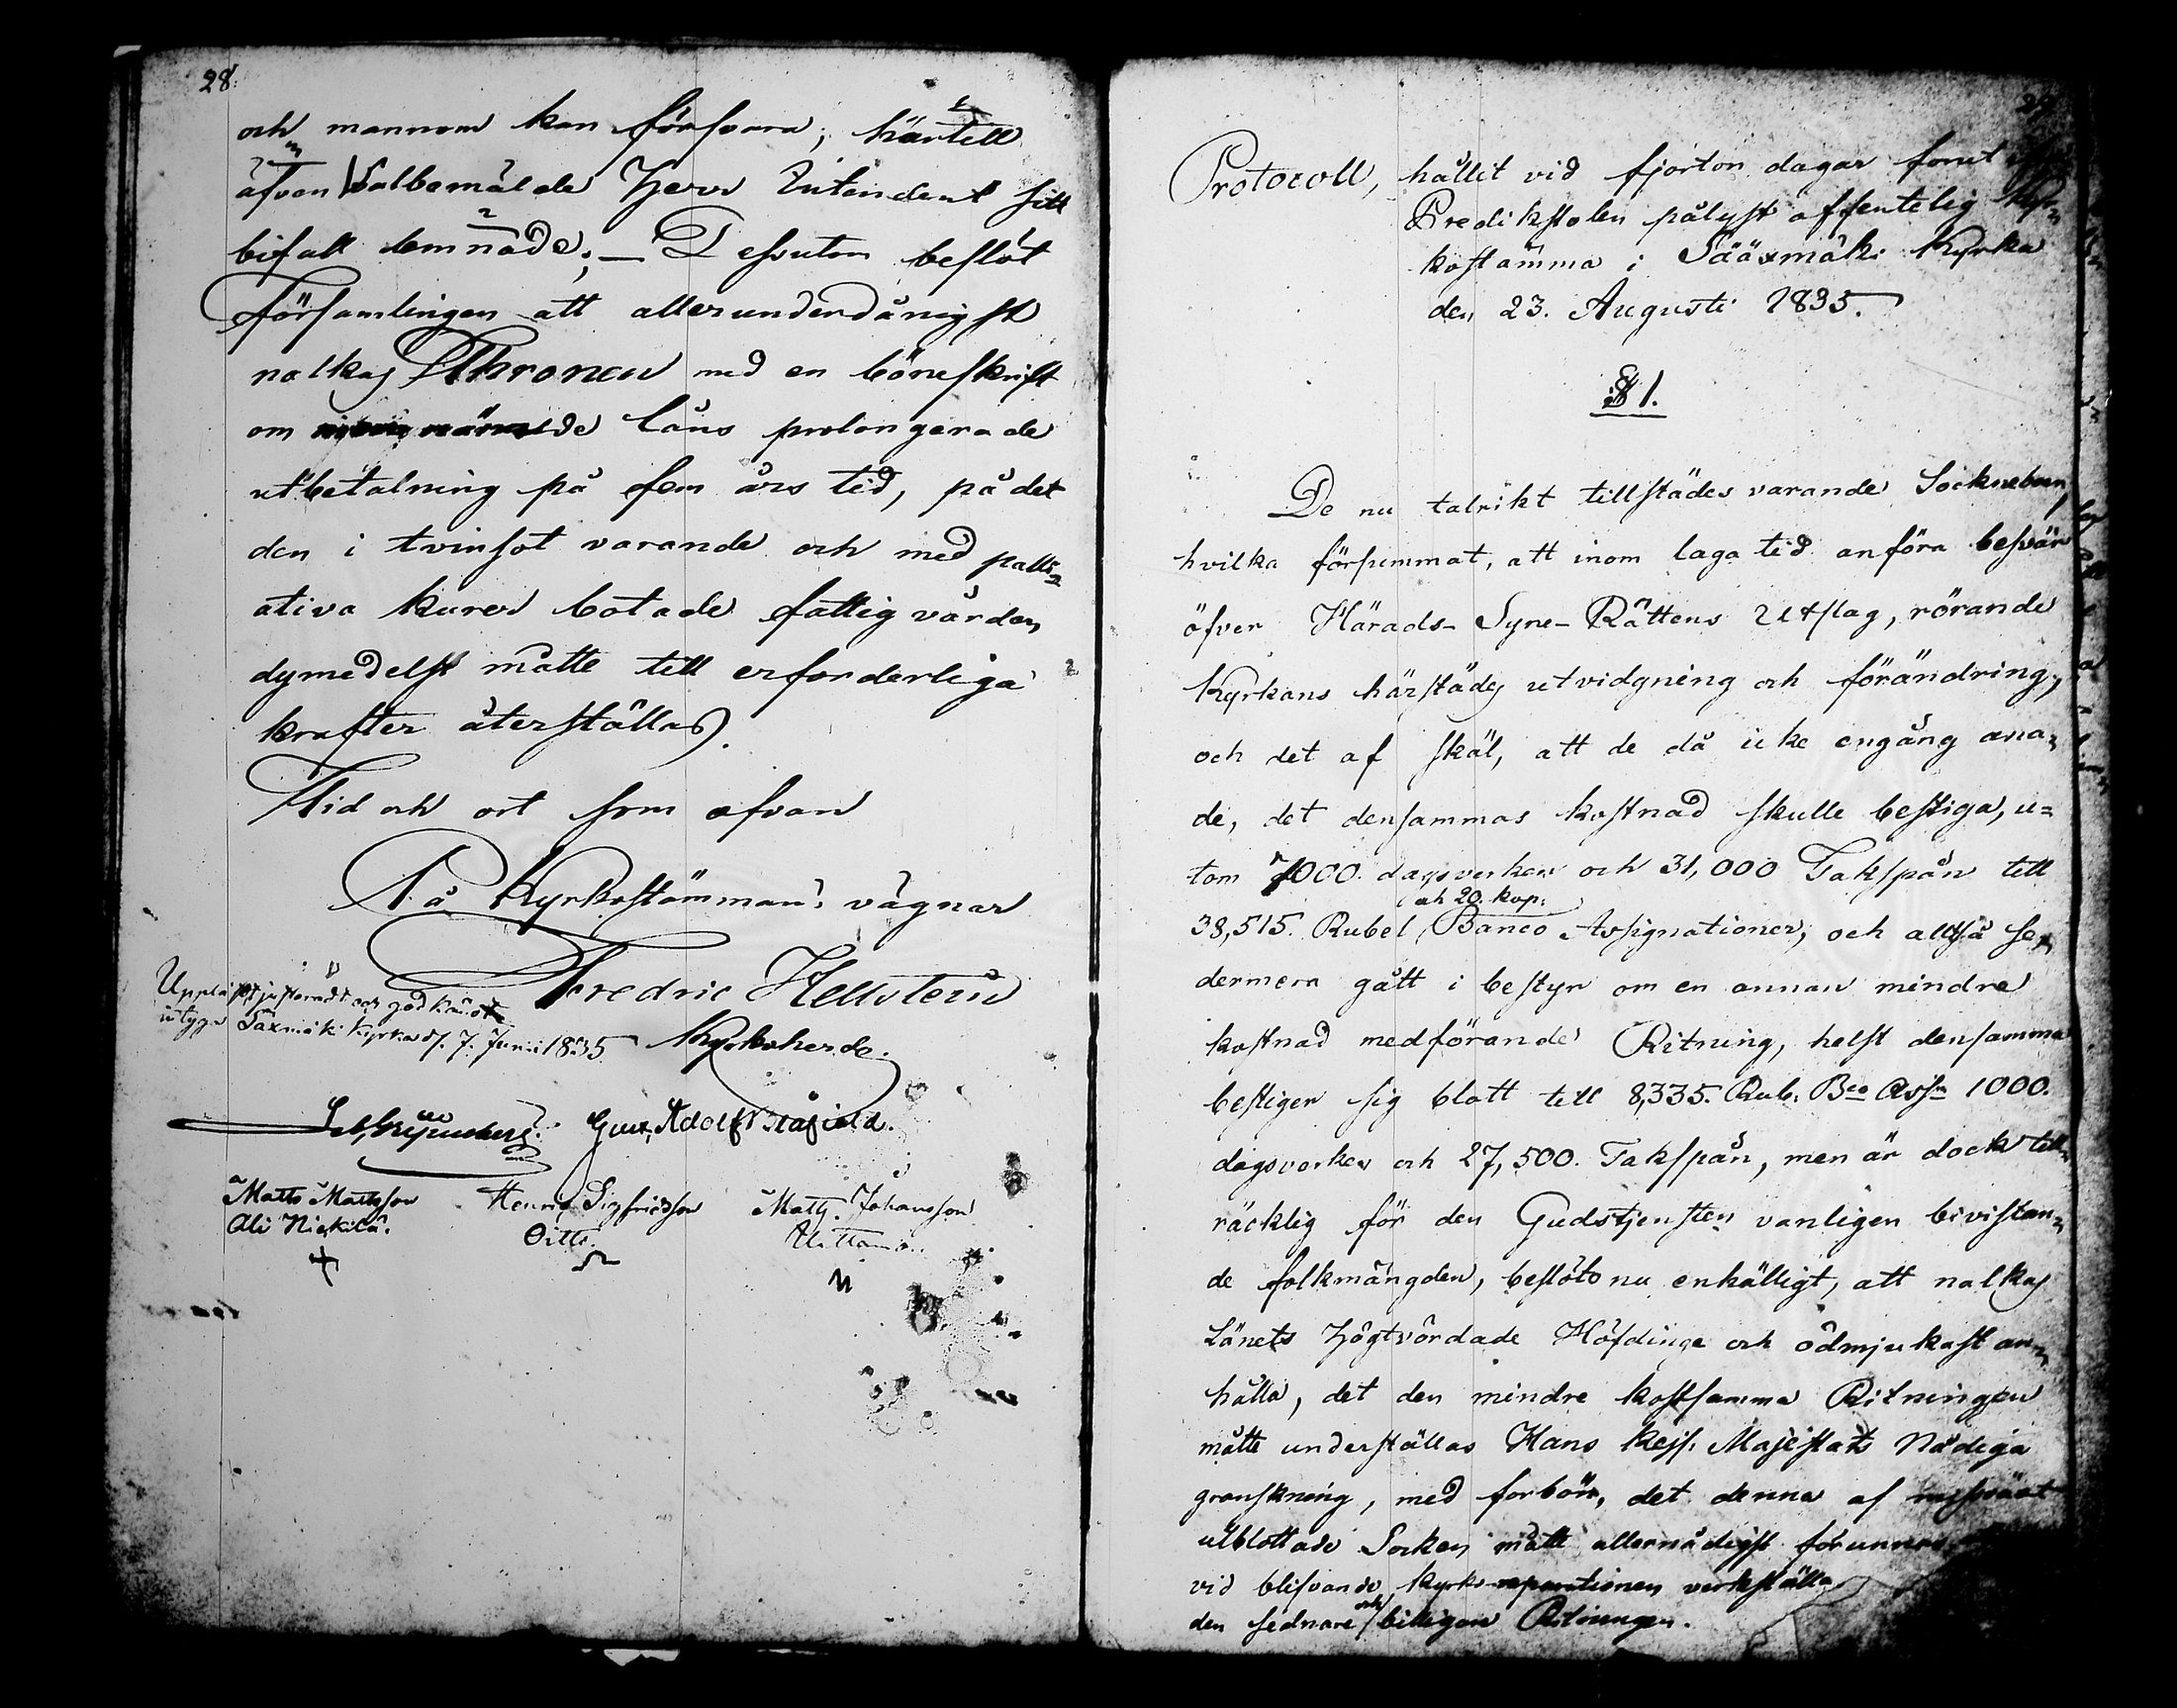 28.
och mannom kan försvara; härtill
äfven Välbemälde Herr Intendent sitt
bifall lemnade; — Dessutom beslöt
Församlingen att allerunderdånigst
nalkas Thronen med en böneskrift
om nämnde låns prolongerade
utbetalning på fem års tid, på det
den i tvinsot varande och med palli-
ativa kurer botade fattigvården,
dymedelst måtte till erforderliga
krafter återställas.
Tid och ort som ofvan
På Kyrkostämmans vägnar
Fredric Hellsten
Kyrkoherde.
Uppläst justeradt och godkändt
intyga Säxmäki Kyrka d. 7. Junii 1835
Gust. Adolf Blåfield.
Matts Mattsson Henric Sigfridsson Matts Johansson
Ali Nickilä. Oitti. Uittamo.
29
Protocoll, hållit vid fjorton dagar förut ifrån
Predikstolen pålyst offentelig Kyr-
kostämma i Sääxmäki Kyrka
den 23. Augusti 1835.
§ 1.
De nu talrikt tillstädes varande Socknebon,
hvilka försummat, att inom laga tid anföra besvär
öfver Härads-Syne-Rättens Utslag, rörande
Kyrkans härstädes utvidgning och förändring,
och det af skäl, att de då icke engång ana-
de, det densammas kostnad skulle bestiga, u-
tom 7000. dagsverken och 31,000 Takspån till
38,515. Rubel och 20. kop: Banco Assignationer, och alltså se-
dermera gått i bestyr om en annan mindre
kostnad medförande Ritning, helst densamma
bestiger sig blott till 8,335. Rub. Bco Assn 1000.
dagsverken och 27,500. Takspån, men är dock till-
räcklig för den Gudstjensten vanligen bivistan-
de folkmängden, beslöto nu enhälligt, att nalkas
Länets Högtvördade Höfdinge och ödmjukast an-
hålla, det den mindre kostsamma Ritningen
måtte underställas Hans Kejs. Majestäts Nådiga
granskning, med förbön, det denna af
utblottade Socken måtte allernådigst förunnas
vid blifvande kyrko reparationen verkställa
den sednare och billigare Ritningen.